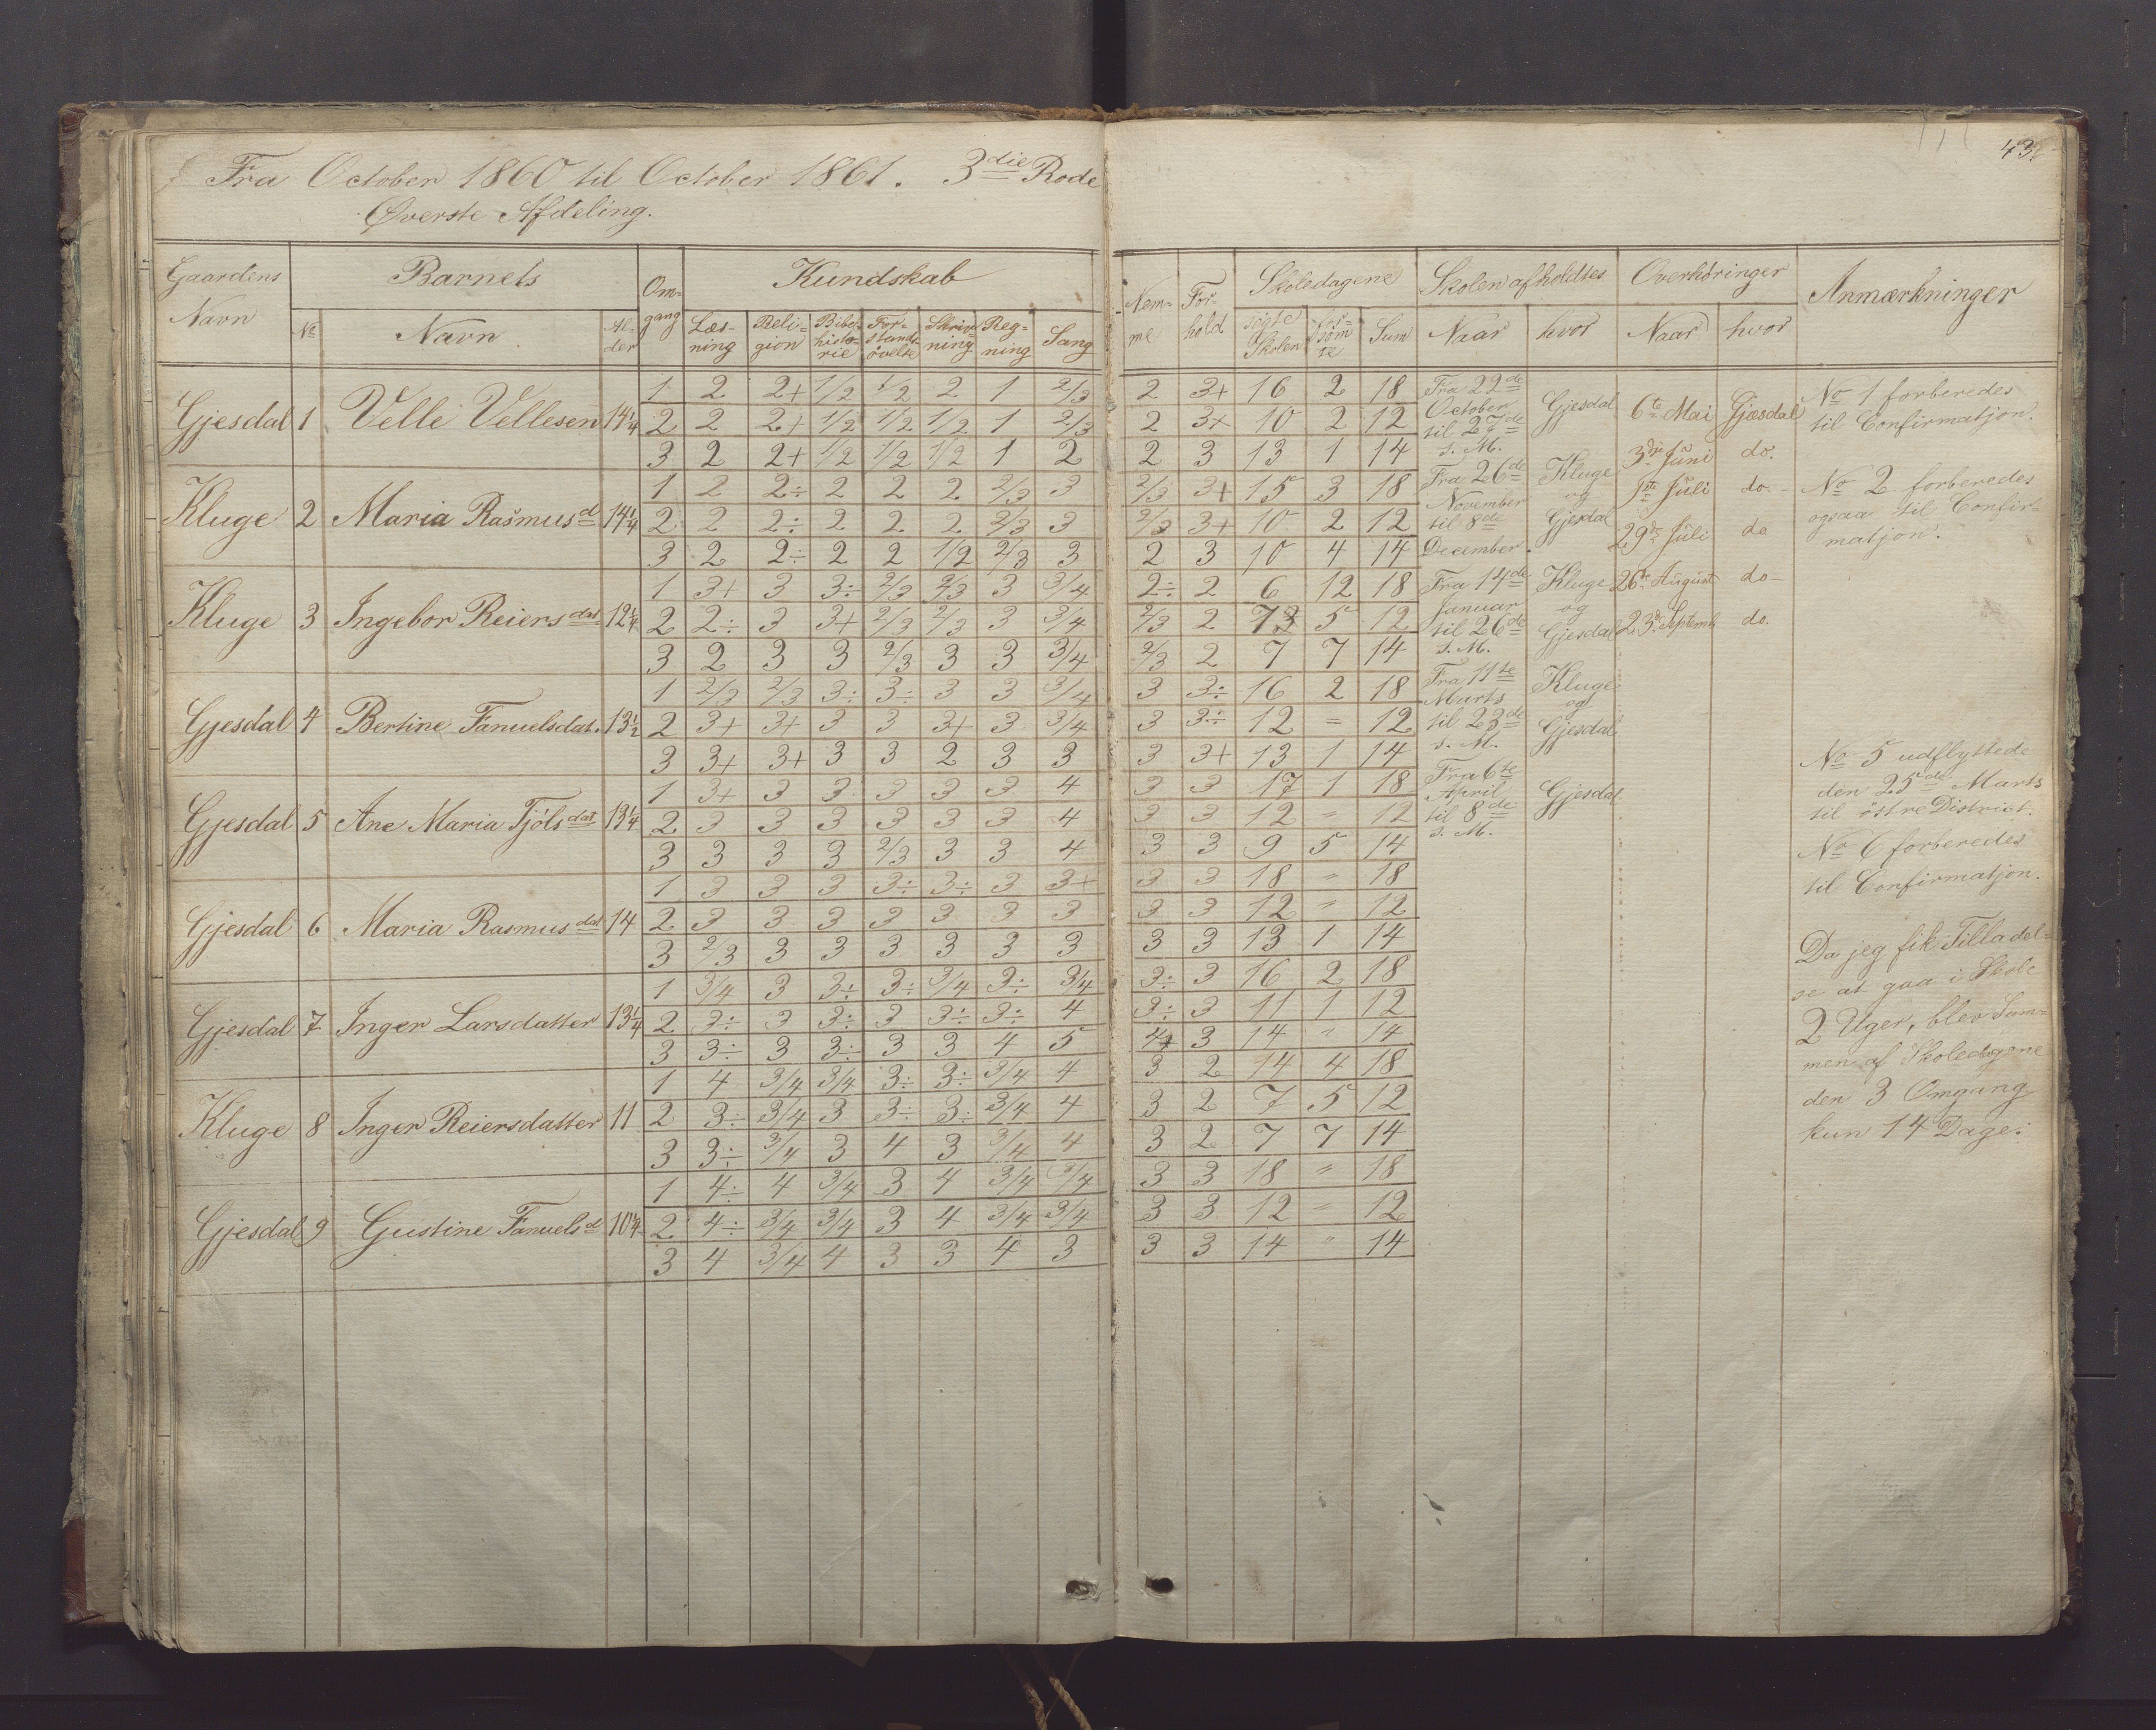 Fra October 1860 til October 1861. 3die Rode
Øverste Afdeling.
43
Gaardens Navn | Barnets | Om-gang | Kundskab | Nem-me | For-hold | Skoledagene | Skolen afholdtes | Overhöringer | Anmærkninger
No | Navn | Al-der | Læs-ning | Reli-gion | Bibel-histo-rie | For-stands-övelse | Skriv-ning | Reg-ning | Sang | sögte Skolen | for-söm-te | Sum | Naar | hvor | Naar | hvor
Gjesdal 1 Velle Vellesen 14 1/4
1 2 2+ 1/2 1/2 2 1 2/3 2 3+ 16 2 18
2 2 2+ 1/2 1/2 1/2 1 2/3 2 3+ 10 2 12
3 2 2+ 1/2 1/2 1/2 1 2 2 3 13 1 14
Kluge 2 Maria Rasmusd 14 1/4
1 2 2÷ 2 2 2 2/3 3 2/3 3+ 15 3 18
2 2 2÷ 2 2 2 2/3 3 2/3 3+ 10 2 12
3 2 2÷ 2 2 1/2 2/3 3 2 3 10 4 14
Kluge 3 Ingebor Reiersdat 12 1/4
1 3+ 3 3÷ 2/3 2/3 3 3/4 2÷ 2 6 12 18
2 2÷ 3 3+ 2/3 2/3 3 3/4 2/3 2 7 5 12
3 2 3 3 2/3 3 3 3/4 2/3 2 7 7 14
Gjesdal 4 Bertine Fanuelsdat. 13 1/2
1 2/3 2/3 3÷ 3÷ 3 3 3/4 3 3÷ 16 2 18
2 3+ 3+ 3 3 3+ 3 3/4 3 3÷ 12 = 12
3 3+ 3+ 3 3 2 3 3 3 3+ 13 1 14
Gjesdal 5 Ane Maria Tjölsdat 13 1/4
1 3+ 3 3 3 3 3 4 3 3 17 1 18
2 3 3 3 3 3 3 4 3 3 12 " 12
3 3 3 3 2/3 3 3 4 3 3 9 5 14
Gjesdal 6 Maria Rasmusdat 14
1 3 3 3 3÷ 3÷ 3 3+ 3 3 18 " 18
2 3 3 3 3 3 3 3 3 3 12 " 12
3 2/3 3 3 3 3 3 3 3 3 13 1 14
Gjesdal 7 Inger Larsdatter 13 1/4
1 3/4 3 3÷ 3÷ 3/4 3÷ 3/4 3÷ 3 16 2 18
2 3÷ 3 3÷ 3 3÷ 3÷ 4 3÷ 3 11 1 12
3 3÷ 3 3÷ 3 3 4 5 4+ 3 14 " 14
Kluge 8 Inger Reiersdatter 11
1 4 3/4 3/4 3÷ 3÷ 3/4 4 3 2 14 4 18
2 3÷ 3/4 3 3÷ 3÷ 3/4 4 3 2 7 5 12
3 3÷ 3/4 3 4 3 3/4 4 3 2 7 7 14
Gjesdal 9 Gustine Fanuelsd 10 1/4
1 4÷ 4 3/4 3 4 3/4 3/4 3 3 18 " 18
2 4÷ 3/4 3/4 3 4 3/4 3/4 3 3 12 " 12
3 4 3/4 4 3 3 4 3 3 3 14 " 14
Fra 22de
October
til 27de
s. M.
Gjesdal
Fra 26de
November
til 8de
December.
Kluge
og
Gjesdal
Fra 14de
Januar
til 26de
s. M.
Kluge
og
Gjesdal
Fra 11te
Marts
til 23de
s. M.
Kluge
og
Gjesdal
Fra 6te
April
til 8de
s. M.
Gjesdal
6te Mai Gjesdal
3die Juni do.
1ste Juli do.
29de Juli do
26de August do
23de Septemb do.
No 1 forberedes
til Confirmatjon.
No 2 forberedes
ogsaa til Confir-
matjon.
No 5 udflyttede
den 25de Marts
til östre District.
No 6 forberedes
til Confirmatjon.
Da jeg fik Tilladel-
se at gaa i Skole
2 Uger, blev Sum-
men af Skoledagene
den 3 Omgang
kun 14 Dage.